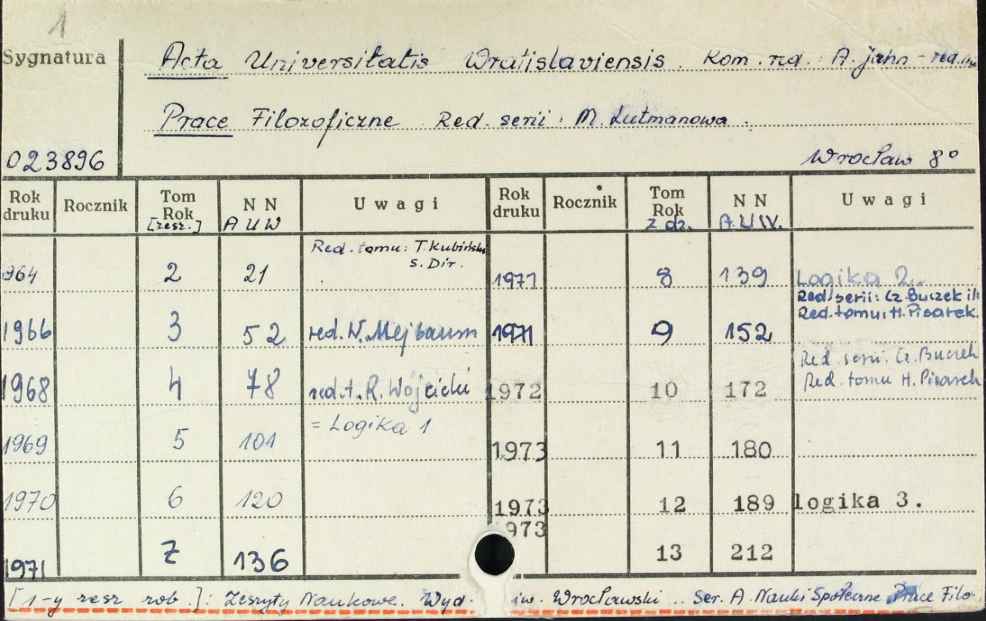 1
Sygnatura
Acta Universitatis Wratislaviensis. Kom. red. A. Jahn - red.
Prace Filozoficzne Red. serii: M. Lutmanowa.
023896
Wrocław 8°
Rok druku Rocznik Tom Rok [zesz.] N N A U W Uwagi Rok druku Rocznik Tom Rok z dz. N N A.U.W. Uwagi
Red. tomu: T. Kubiński
S. Dir.
964 2 21 1971 8 139 Logika 2.
Red. serii: Cz. Buczek i
Red. tomu: H. Pisarek
1966 3 52 red. W. Mejbaum 1971 9 152
Red. serii. Cz. Buczek
Red. tomu H. Pisarek
1968 4 78 red. t. R. Wójcicki 1972 10 172
= Logika 1
1969 5 101 1973 11 180
1970 6 120 1973 12 189 logika 3.
1971 7 136 1973 13 212
[1-y zesz. rob.]: Zeszyty Naukowe. Wyd. iw. Wrocławski. Ser. A. Nauki Społeczne Prace Filo-